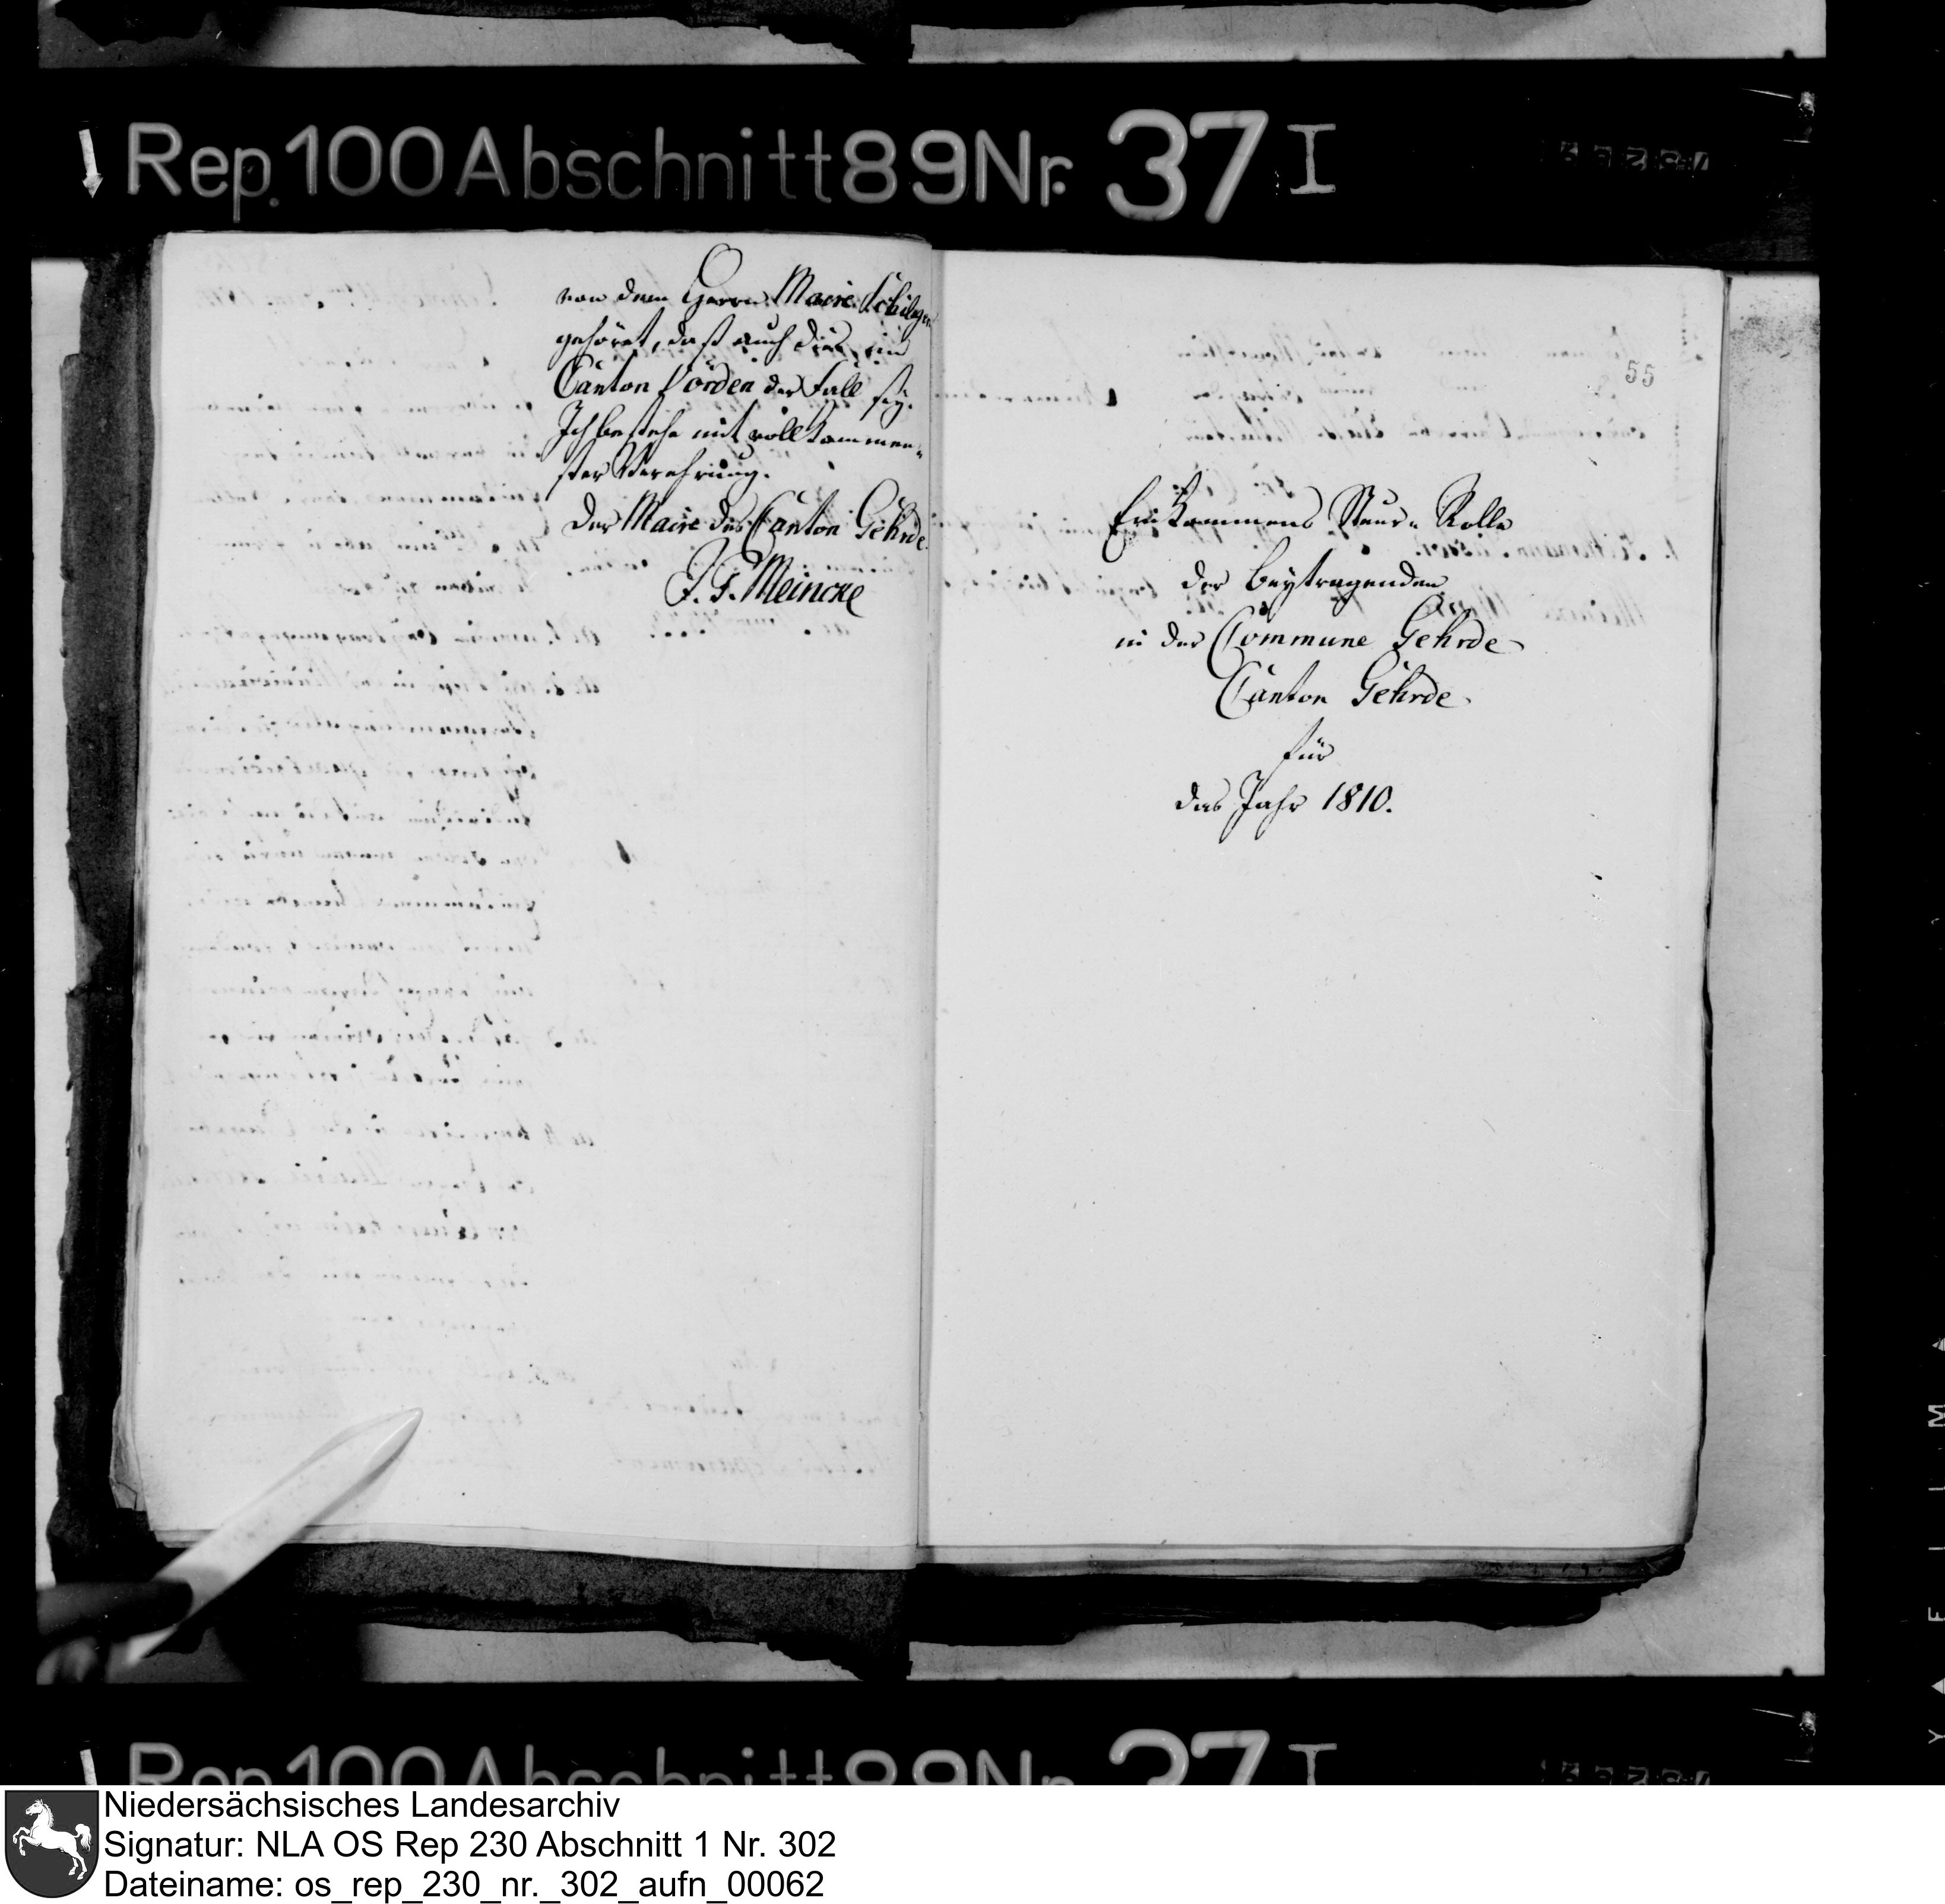 Rep. 100 Abschnitt 89 Nr. 37 I
von dem Herrn Maire Schilgen
gehöret, daß auch dies im
Canton Vörden der Fall sey.
Ich bestehe mit vollkommen-
ster Verehrung.
Der Maire des Canton Gehrde
J. G. Meincke
55
Einkommens Steur- Rolle
der Beytragenden
in der Commune Gehrde
Canton Gehrde
für
das Jahr 1810.
Rep. 100 Abschnitt 89 Nr. 37 I
Niedersächsisches Landesarchiv
Signatur: NLA OS Rep 230 Abschnitt 1 Nr. 302
Dateiname: os_rep_230_nr._302_aufn_00062